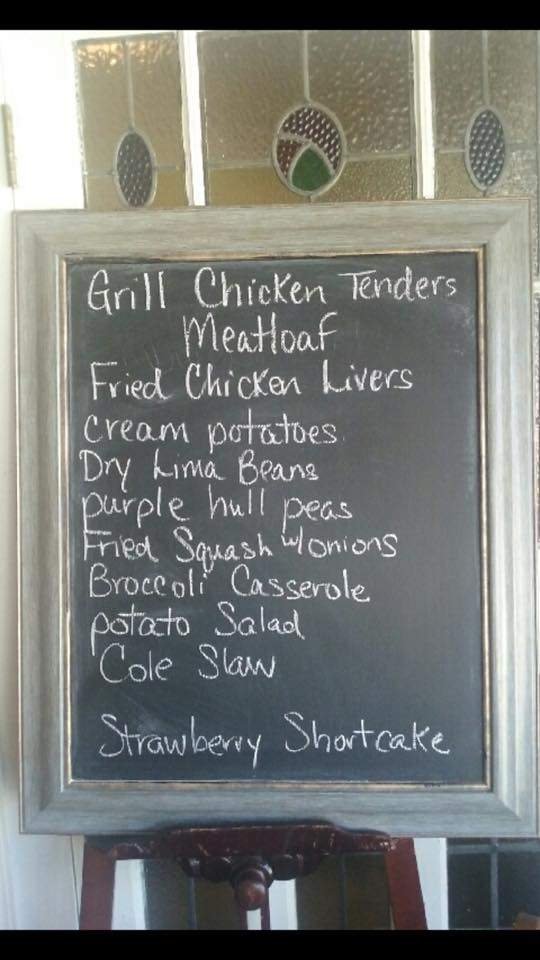 Grill Chicken Tenders
Meatloaf
Fried Chicken Livers
cream potatoes
Dry Lima Beans
purple hull peas
Fried Squash w/onions
Broccoli Casserole
potato Salad
Cole Slaw
Strawberry Shortcake